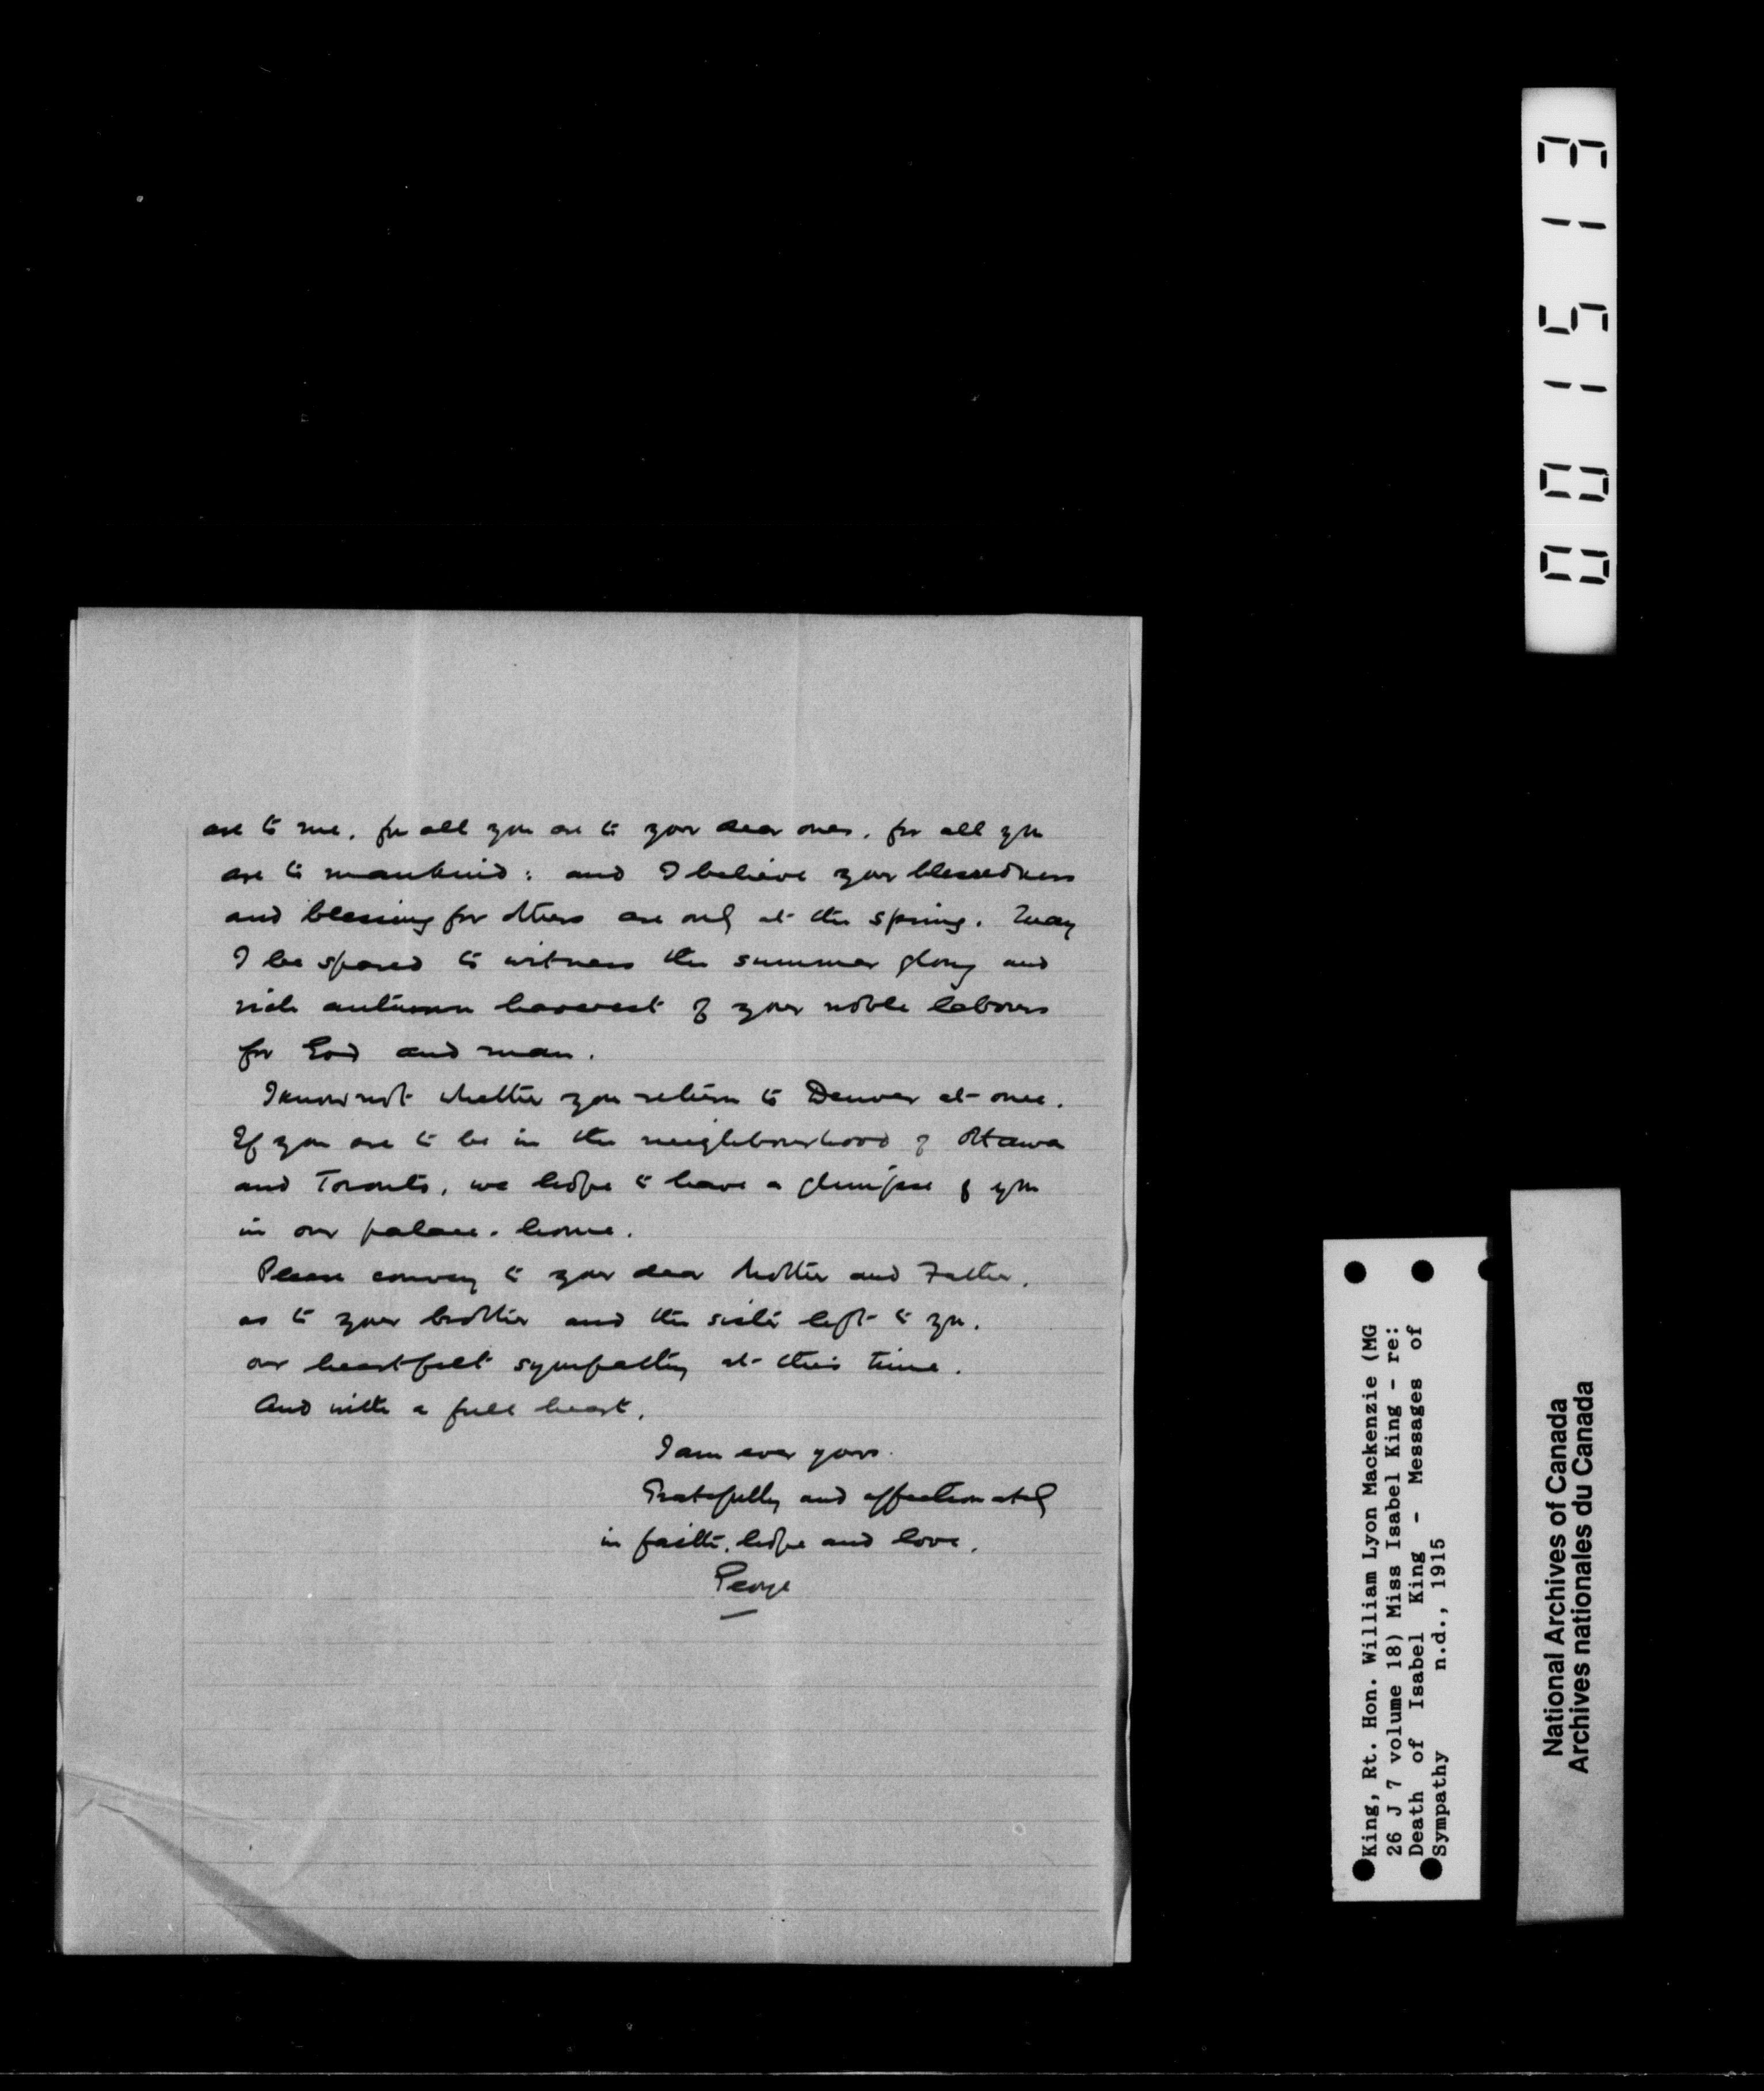 are to me, for all you are to your dear ones, for all you
are to mankind: and I believe your blessedness
and blessing for others are only at the spring. May
I be spared to witness the summer glory and
rich autumn harvest of your noble labours
for God and man.
I know not whether you return to Denver at once.
If you are to be in the neighbourhood of Ottawa
and Toronto, we hope to have a glimpse of you
in our palace-home.
Please convey to your dear Mother and Father,
as to your brother and the sister left to you,
our heartfelt sympathy at this time.
And with a full heart,
I am ever yours
Gratefully and affectionately
in faith, hope and love,
George
001513
King, Rt. Hon. William Lyon Mackenzie (MG
26 J 7 volume 18) Miss Isabel King - re:
Death of Isabel King - Messages of
Sympathy n.d., 1915
National Archives of Canada
Archives nationales du Canada